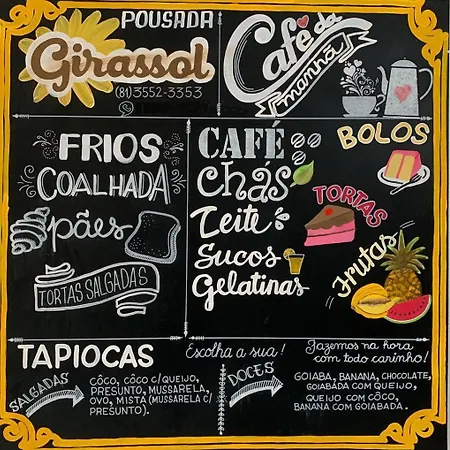 POUSADA
Girassol
(81)3552-3353
Café da
manhã
FRIOS
COALHADA
pães
TORTAS SALGADAS
CAFÉ
chas
Leite
Sucos
Gelatinas
BOLOS
TORTAS
Frutas
TAPIOCAS
Escolha a sua!
Fazemos na hora
com todo carinho!
SALGADAS
CÔCO, CÔCO C/QUEIJO,
PRESUNTO, MUSSARELA,
OVO, MISTA (MUSSARELA C/
PRESUNTO).
DOCES
GOIABA, BANANA, CHOCOLATE,
GOIABADA COM QUEIJO,
QUEIJO COM CÔCO,
BANANA COM GOIABADA.